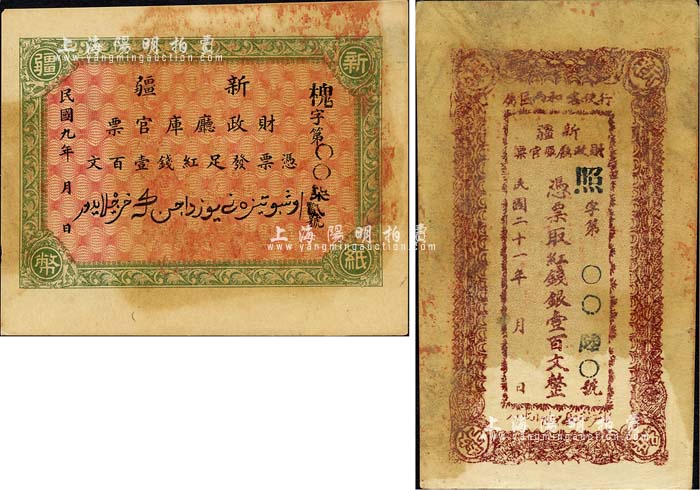 疆 新
槐字第〇〇柒貳號
疆 新
票官庫廳政財
文百壹錢紅足發票憑
民國九年 月 日
幣 紙
上海陽明拍賣
www.yangmingauction.com
行使喀和兩區
疆 新
票官廳政財
照字第〇〇陸〇號
憑票取紅錢銀壹百文整
民國二十一年 月 日
上海陽明拍賣
www.yangmingauction.com
上海陽明拍賣
www.yangmingauction.com
上海陽明拍賣
www.yangmingauction.com